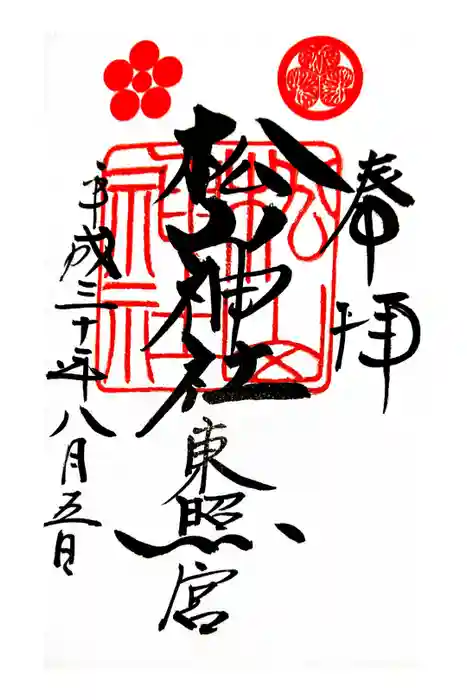 奉拝
松山神社
東照宮
平成三十年八月五日
松山神社